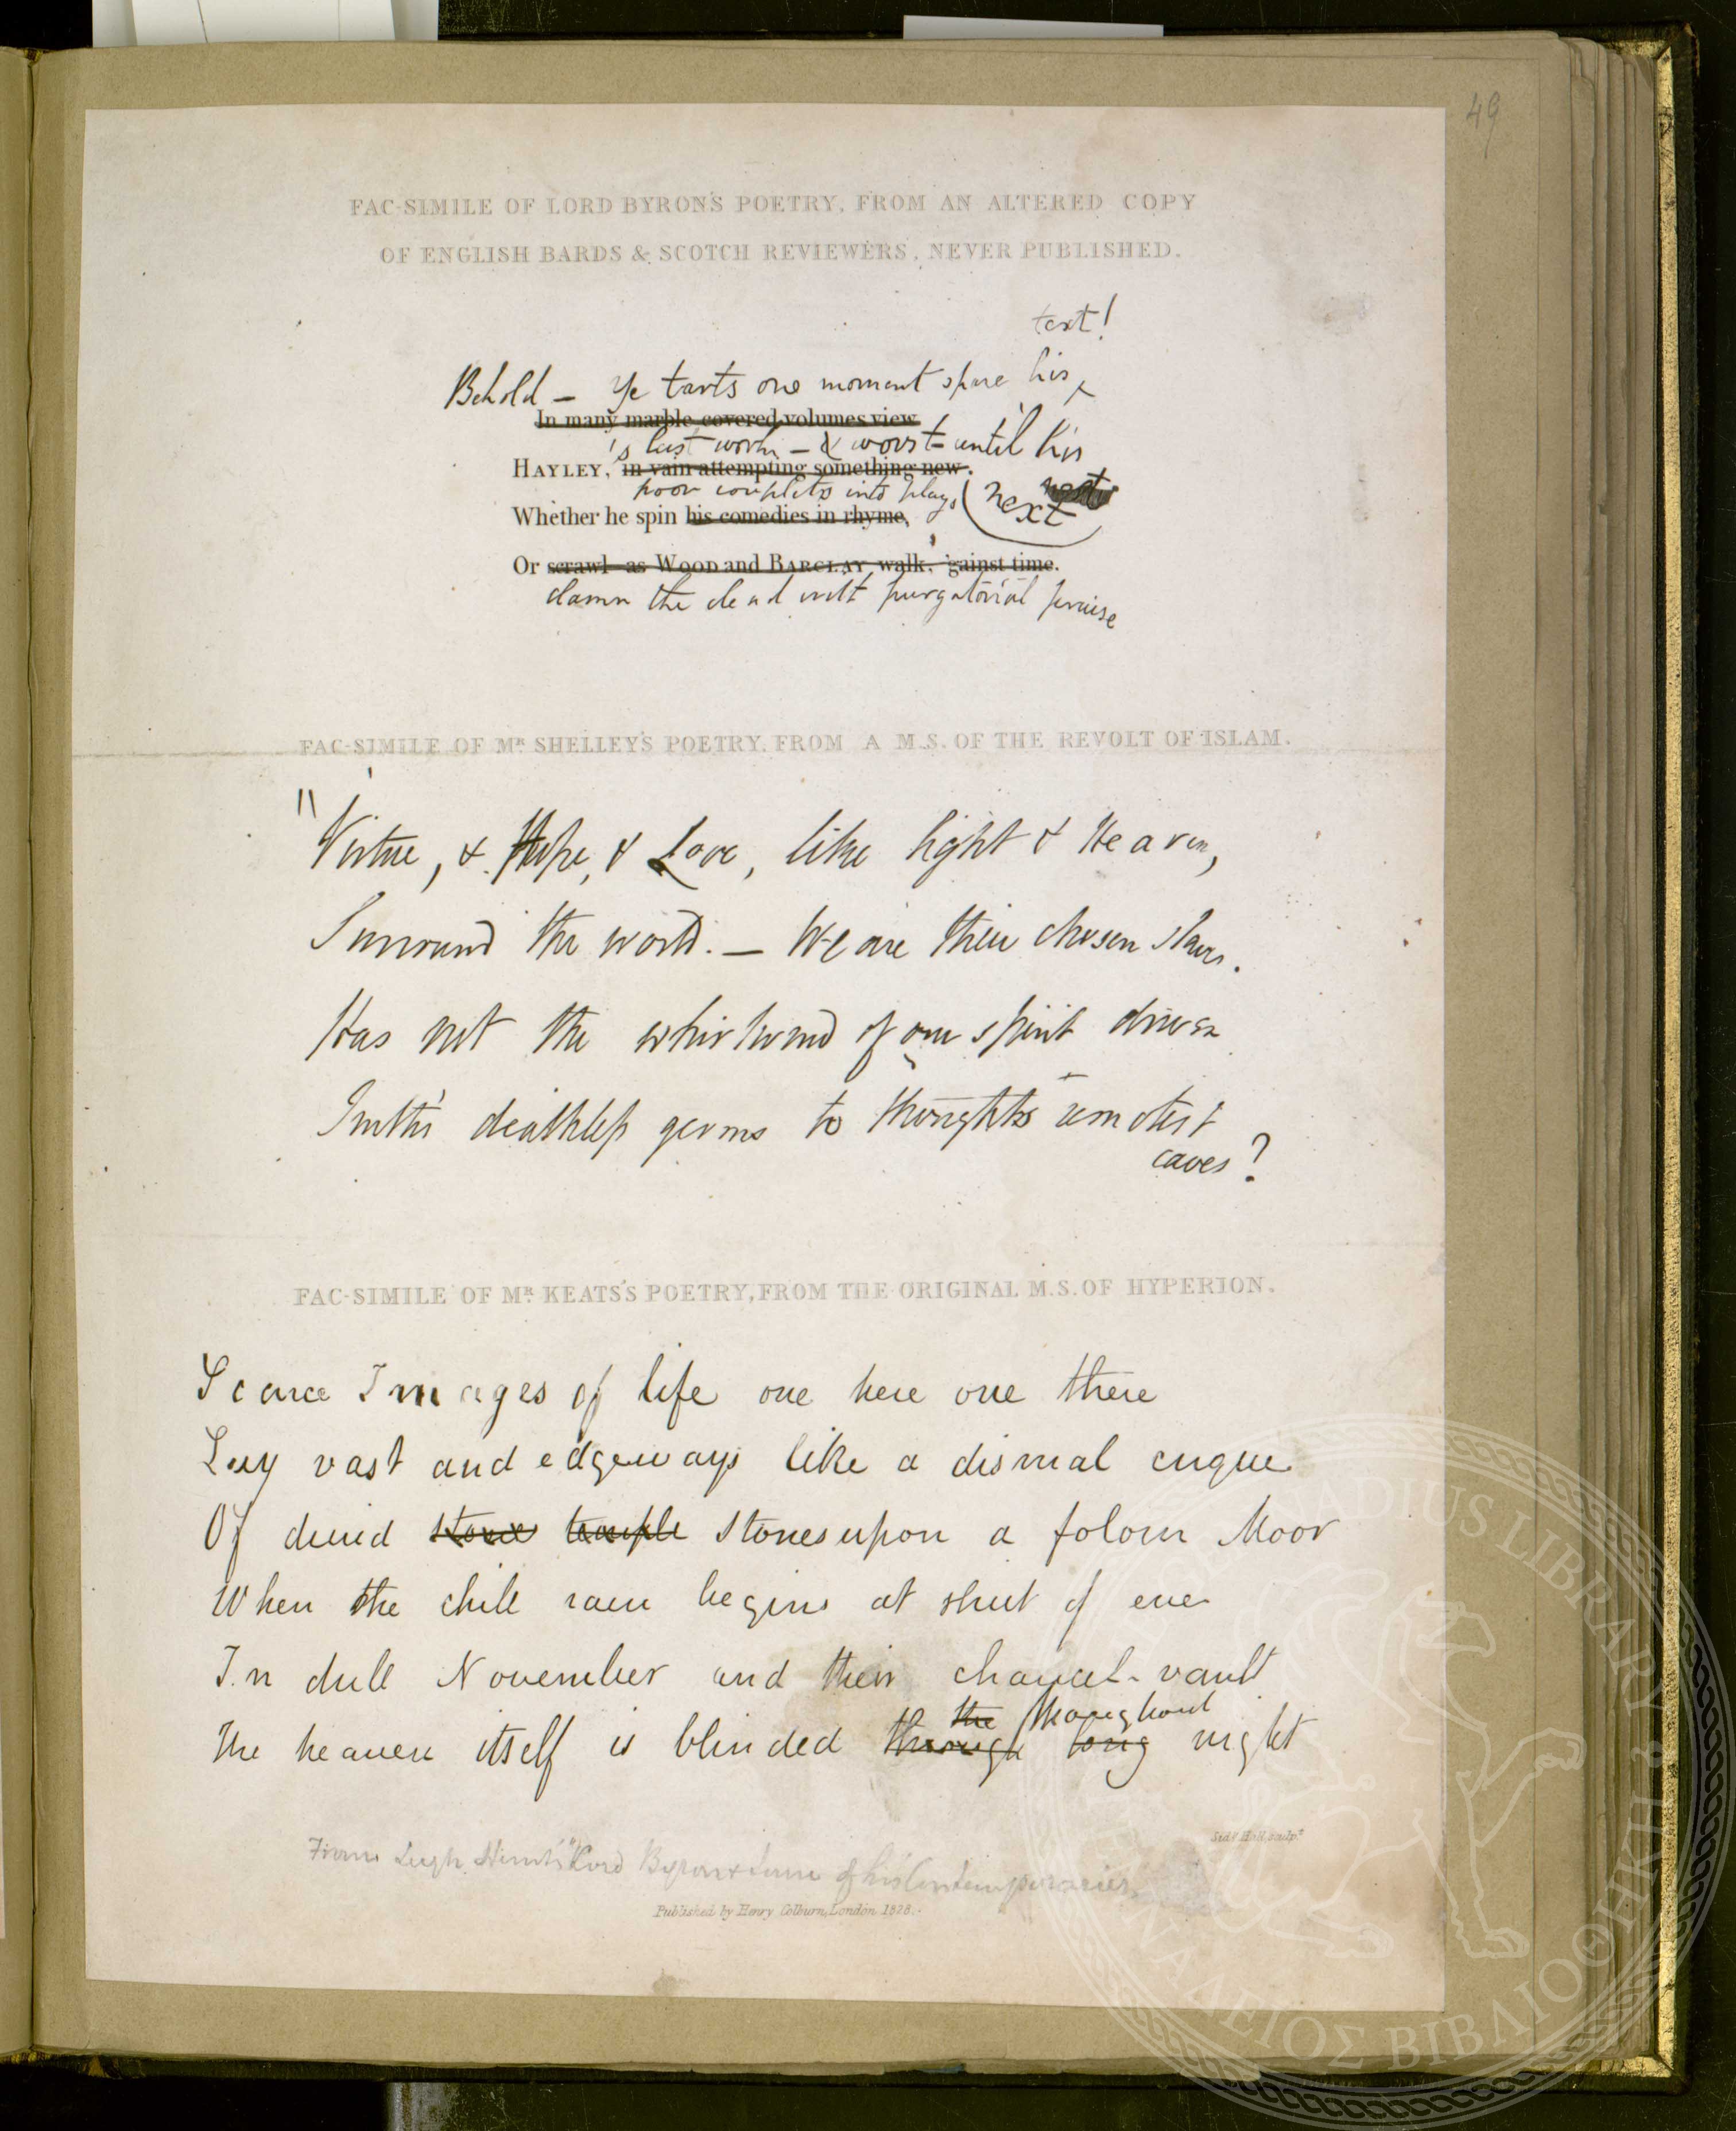 49
FAC-SIMILE OF LORD BYRON'S POETRY, FROM AN ALTERED COPY
OF ENGLISH BARDS & SCOTCH REVIEWERS, NEVER PUBLISHED.
text!
Behold – Ye tarts one moment spare his
In many marble-covered volumes view
's last work – & worst – until his
HAYLEY, in vain attempting something new.
poor couplets into plays next
Whether he spin his comedies in rhyme,
Or scrawl as WOOD and BARCLAY walk, 'gainst time.
damn the dead with purgatorial praise
FAC-SIMILE OF MR. SHELLEY'S POETRY, FROM A M.S. OF THE REVOLT OF ISLAM.
"Virtue, & Hope, & Love, like light & Heaven,
Surround the world. – We are their chosen slaves.
Has not the whirlwind of our spirit driven
Truth's deathless germs to thought's remotest
caves?
FAC-SIMILE OF MR. KEATS'S POETRY, FROM THE ORIGINAL M.S. OF HYPERION.
Scarce Images of life one here one there
Lay vast and edgeways like a dismal cirque
Of druid stone temple stones upon a folorn Moor
When the chill rain begins at shut of eve
In dull November and their chancel-vault
the throughout
The heaven itself is blinded through long night
Sidy. Hall, sculpt.
From Leigh Hunt's "Lord Byron & Some of his Contemporaries"
Published by Henry Colburn, London 1828.
GENNADIUS LIBRARY
ΓΕΝΝΑΔΕΙΟΣ ΒΙΒΛΙΟΘΗΚΗ